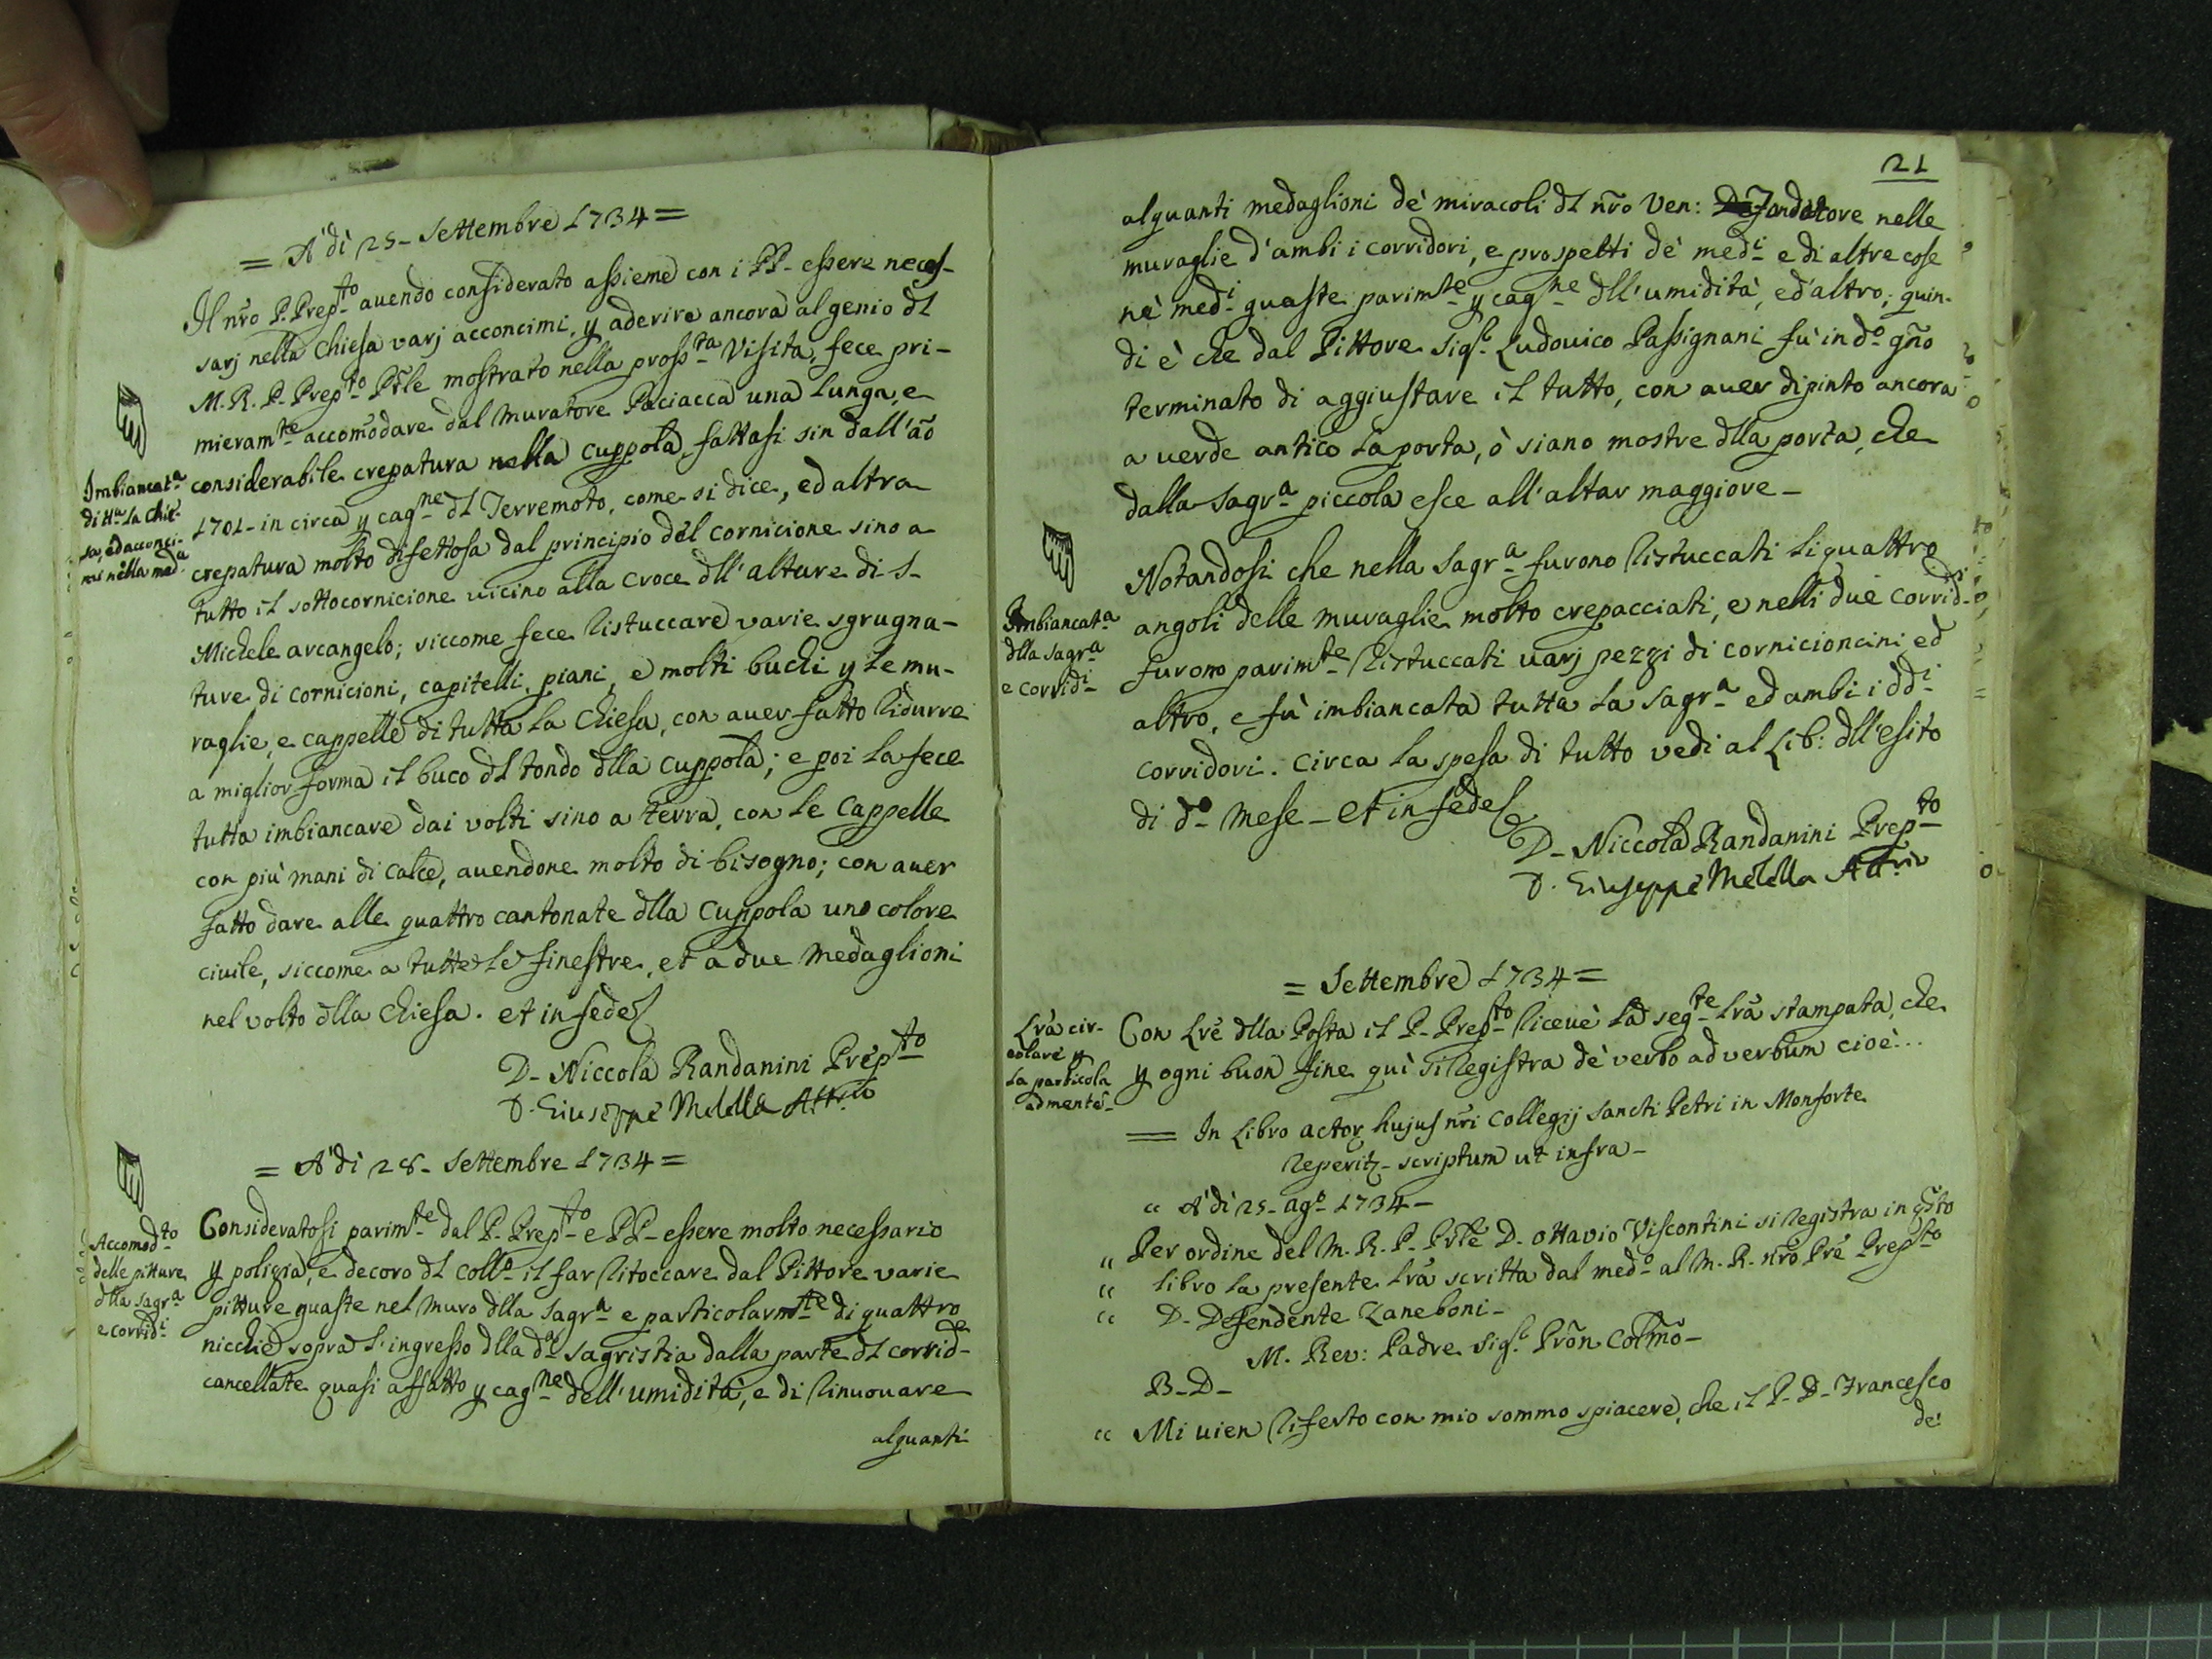 = A' dì 25 - Settembre 1734 =
Il nr̃o P. Prep.to auendo considerato assieme con i PP. essere neces-
sarj nella Chiesa varj acconcimi, y aderire ancora al genio dl
M. R. P. Prep.to Pr̃le mostrato nella pross.ta Visita, fece pri-
mieram.te accom̃odare dal Muratore Paciacca una lunga, e
considerabile crepatura nella Cuppola, fattasi sin dall'ãõ
1701 - in circa y cag.ne dl Terremoto, come si dice, ed altra
crepatura molto difettosa dal principio del cornicione sino a
tutto il sottocornicione uicino alla Croce dll'altare di S.
Michele arcangelo; siccome fece ristuccare varie sgrugna-
ture di cornicioni, capitelli, piani, e molti buchi y le mu-
raglie, e cappelle di tutta la Chiesa, con auer fatto ridurre
a miglior forma il buco dl tondo dlla Cuppola; e poi la fece
tutta imbiancare dai volti sino a terra, con le Cappelle
con più mani di calce, auendone molto di bisogno; con auer
fatto dare alle quattro cantonate dlla Cuppola uno colore
ciuile, siccome a tutte le finestre, et a due Medaglioni
nel volto dlla Chiesa. et in fede
D. Niccola Randanini Prep.to
D. Giuseppe Melella Att.rio
Imbiancat.a
di tt.a la Chie-
sa, ed acconci-
mi nella med.a
= A' dì 28 - Settembre 1734 =
Consideratosi parim.te dal P. Prep.to e PP. essere molto necessario
y polizia, e decoro dl Coll.o il far ritoccare dal Pittore varie
pitture guaste nel Muro dlla Sagr.a e particolarm.te di quattro
nicchie sopra l'ingresso dlla d.a Sagristia dalla parte dl corrid.e
cancellate quasi affatto y cag.ne dell'umidità, e di rinuouare
alquanti
Accomod.to
delle pitture
dlla Sagr.a
e corrid.i
21
alquanti medaglioni de' miracoli dl nr̃o Ven: Fondatore nelle
muraglie d'ambi i corridori, e prospetti de' med.i e di altre cose
ne' med.i guaste parim.te y cag.ne dll'umidità, ed altro; quin-
di è che dal Pittore Sig.r Ludouico Passignani fù in d.o gño
terminato di aggiustare il tutto, con auer dipinto ancora
a uerde antico la porta, ò siano mostre dlla porta, che
dalla Sagr.a piccola esce all'altar maggiore -
Notandosi che nella Sagr.a furono ristuccati li quattro
angoli delle muraglie molto crepacciati, e nelli due corrid.i
furono parim.te ristuccati uarj pezzi di cornicioncini ed
altro, e fù imbiancata tutta la Sagr.a ed ambi i dd.i
corridori. Circa la spesa di tutto vedi al Lib: dll'esito
di d.o Mese - et in fede
D. Niccola Randanini Prep.to
D. Giuseppe Melella Att.rio
Imbiancat.a
dlla Sagr.a
e corrid.i
= Settembre 1734 =
Con Lr̃e dlla Posta il P. Prep.to riceuè la seg.te Lr̃a stampata, che
y ogni buon fine quì si registra de verbo ad verbum cioè...
Lr̃a cir-
colare y
la particola
ad mentẽ
= In Libro actor hujus nr̃i Collegij Sancti Petri in Monforte
reperit - scriptum ut infra -
" A' dì 25 - ag.o 1734 -
" Per ordine del M. R. P. Pr̃le D. Ottauio Viscontini si registra in q̃sto
" libro la presente Lr̃a scritta dal med.o al M. R. nr̃o Pr̃e Prep.sto
" D. Defendente Zaneboni -
M. Rev: Padre Sig.r Prõn Col̃mõ -
B - D -
" Mi uien riferto con mio sommo spiacere, che il P. D. Francesco
de'